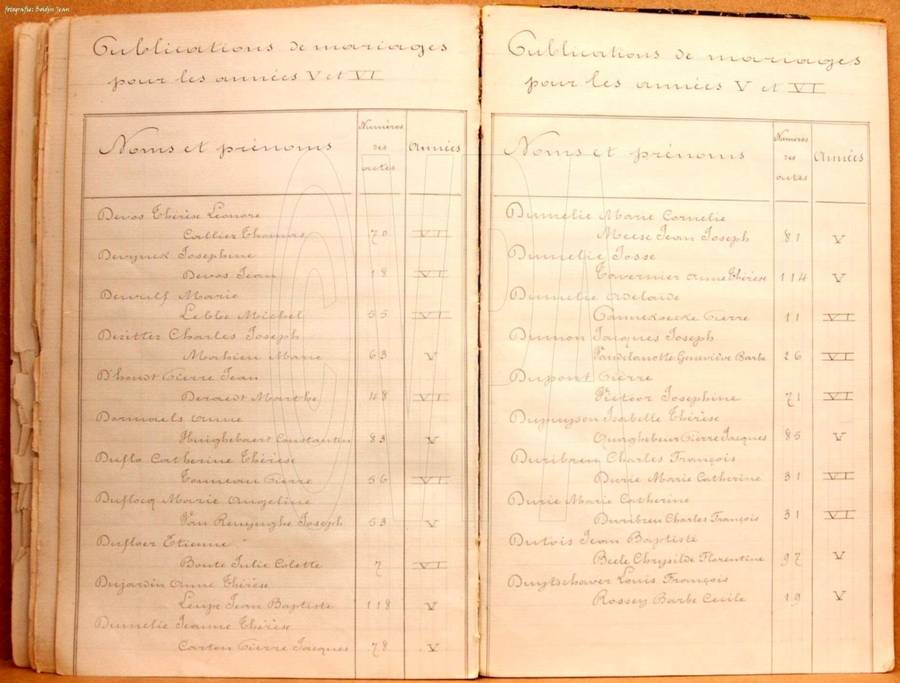 fotografie: Boidyn Jean
Publications de mariages
pour les années V et VI
Noms et prénoms
Numéros
des
actes
Années
Devos Thérèse Léonore
Callier Thomas 70 VI
Devynck Josephine
Devos Jean 18 VI
Dewulf Marie
Lebbe Michel 55 VI
Dezitter Charles Joseph
Mahieu Marie 63 V
D'hondt Pierre Jean
Deraedt Marthe 48 VI
Dormaels Anne
Huighebaert Constantin 83 V
Duflo Catherine Thérèse
Tonneau Pierre 56 VI
Duflocq Marie Angeline
Van Renynghe Joseph 53 V
Dufloer Etienne
Boute Julie Colette 7 VI
Dujardin Anne Thérèse
Leupe Jean Baptiste 118 V
Dumelie Jeanne Thérèse
Carton Pierre Jacques 78 V
Publications de mariages
pour les années V et VI
Noms et prénoms
Numéros
des
actes
Années
Dumelie Marie Cornelie
Meese Jean Joseph 81 V
Dumelie Josse
Tavernier Anne Thérèse 114 V
Dumelie Adelaïde
Pannekoecke Pierre 11 VI
Dumon Jacques Joseph
Vandelanotte Geneviève Barbe 26 VI
Dupont Pierre
Pieteor Josephine 71 VI
Dupuyson Isabelle Thérèse
Ourghebeur Pierre Jacques 85 V
Duribreu Charles François
Durie Marie Catherine 31 VI
Durie Marie Catherine
Duribreu Charles François 31 VI
Dutois Jean Baptiste
Beele Chrysilde Florentine 97 V
Duytschaver Louis François
Rossey Barbe Cecile 19 V